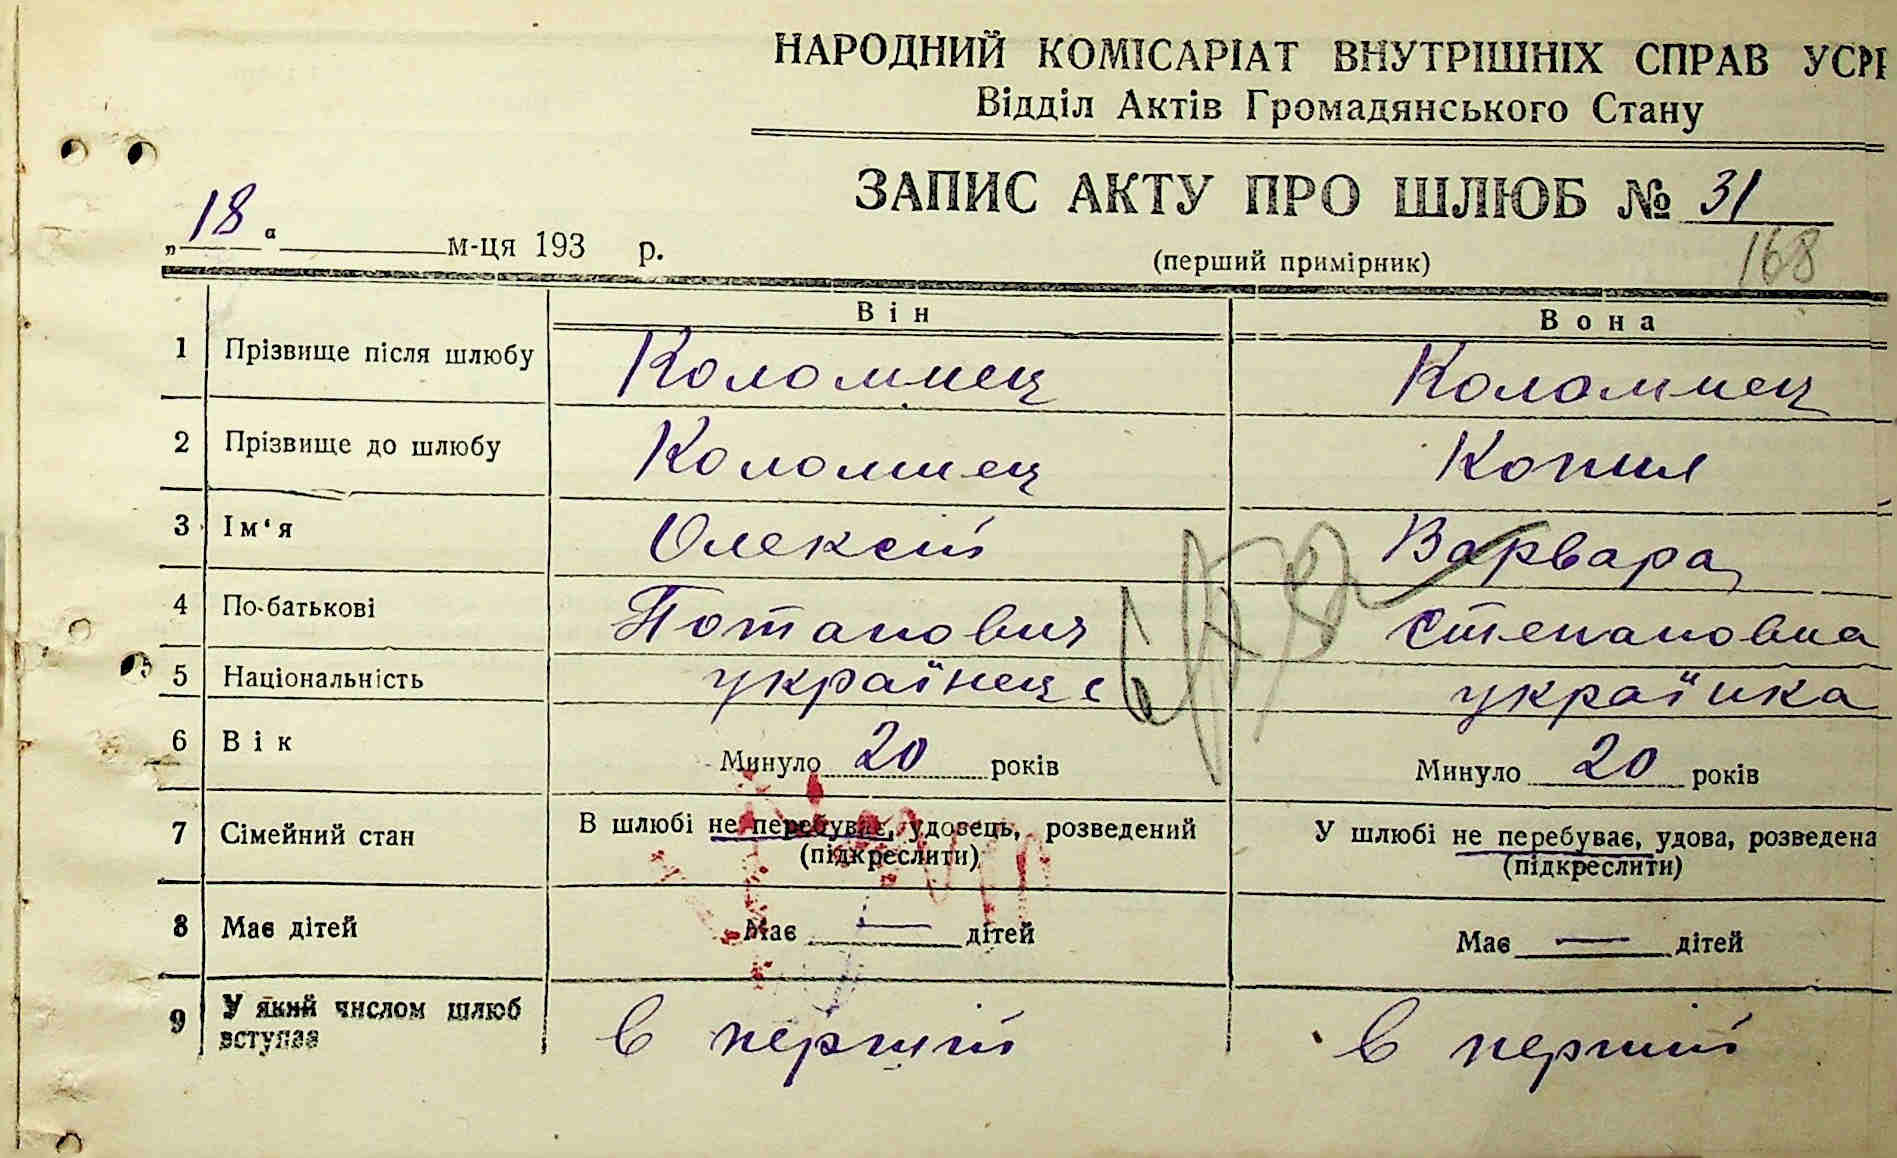 НАРОДНИЙ КОМІСАРІАТ ВНУТРІШНІХ СПРАВ УСРР
Відділ Актів Громадянського Стану
ЗАПИС АКТУ ПРО ШЛЮБ № 31
„18“ м-ця 193 р.
(перший примірник) 168
Він Вона
1 Прізвище після шлюбу Коломиец Коломиец
2 Прізвище до шлюбу Коломиец
3 Ім‘я Олексій Варвара
4 По-батькові Потапович Степановна
5 Національність українець українка
6 Вік Минуло 20 років Минуло 20 років
7 Сімейний стан В шлюбі не перебуває, удовець, розведений У шлюбі не перебуває, удова, розведена
(підкреслити) (підкреслити)
8 Має дітей Має — дітей Має — дітей
9 У який числом шлюб в первий в первий
вступає